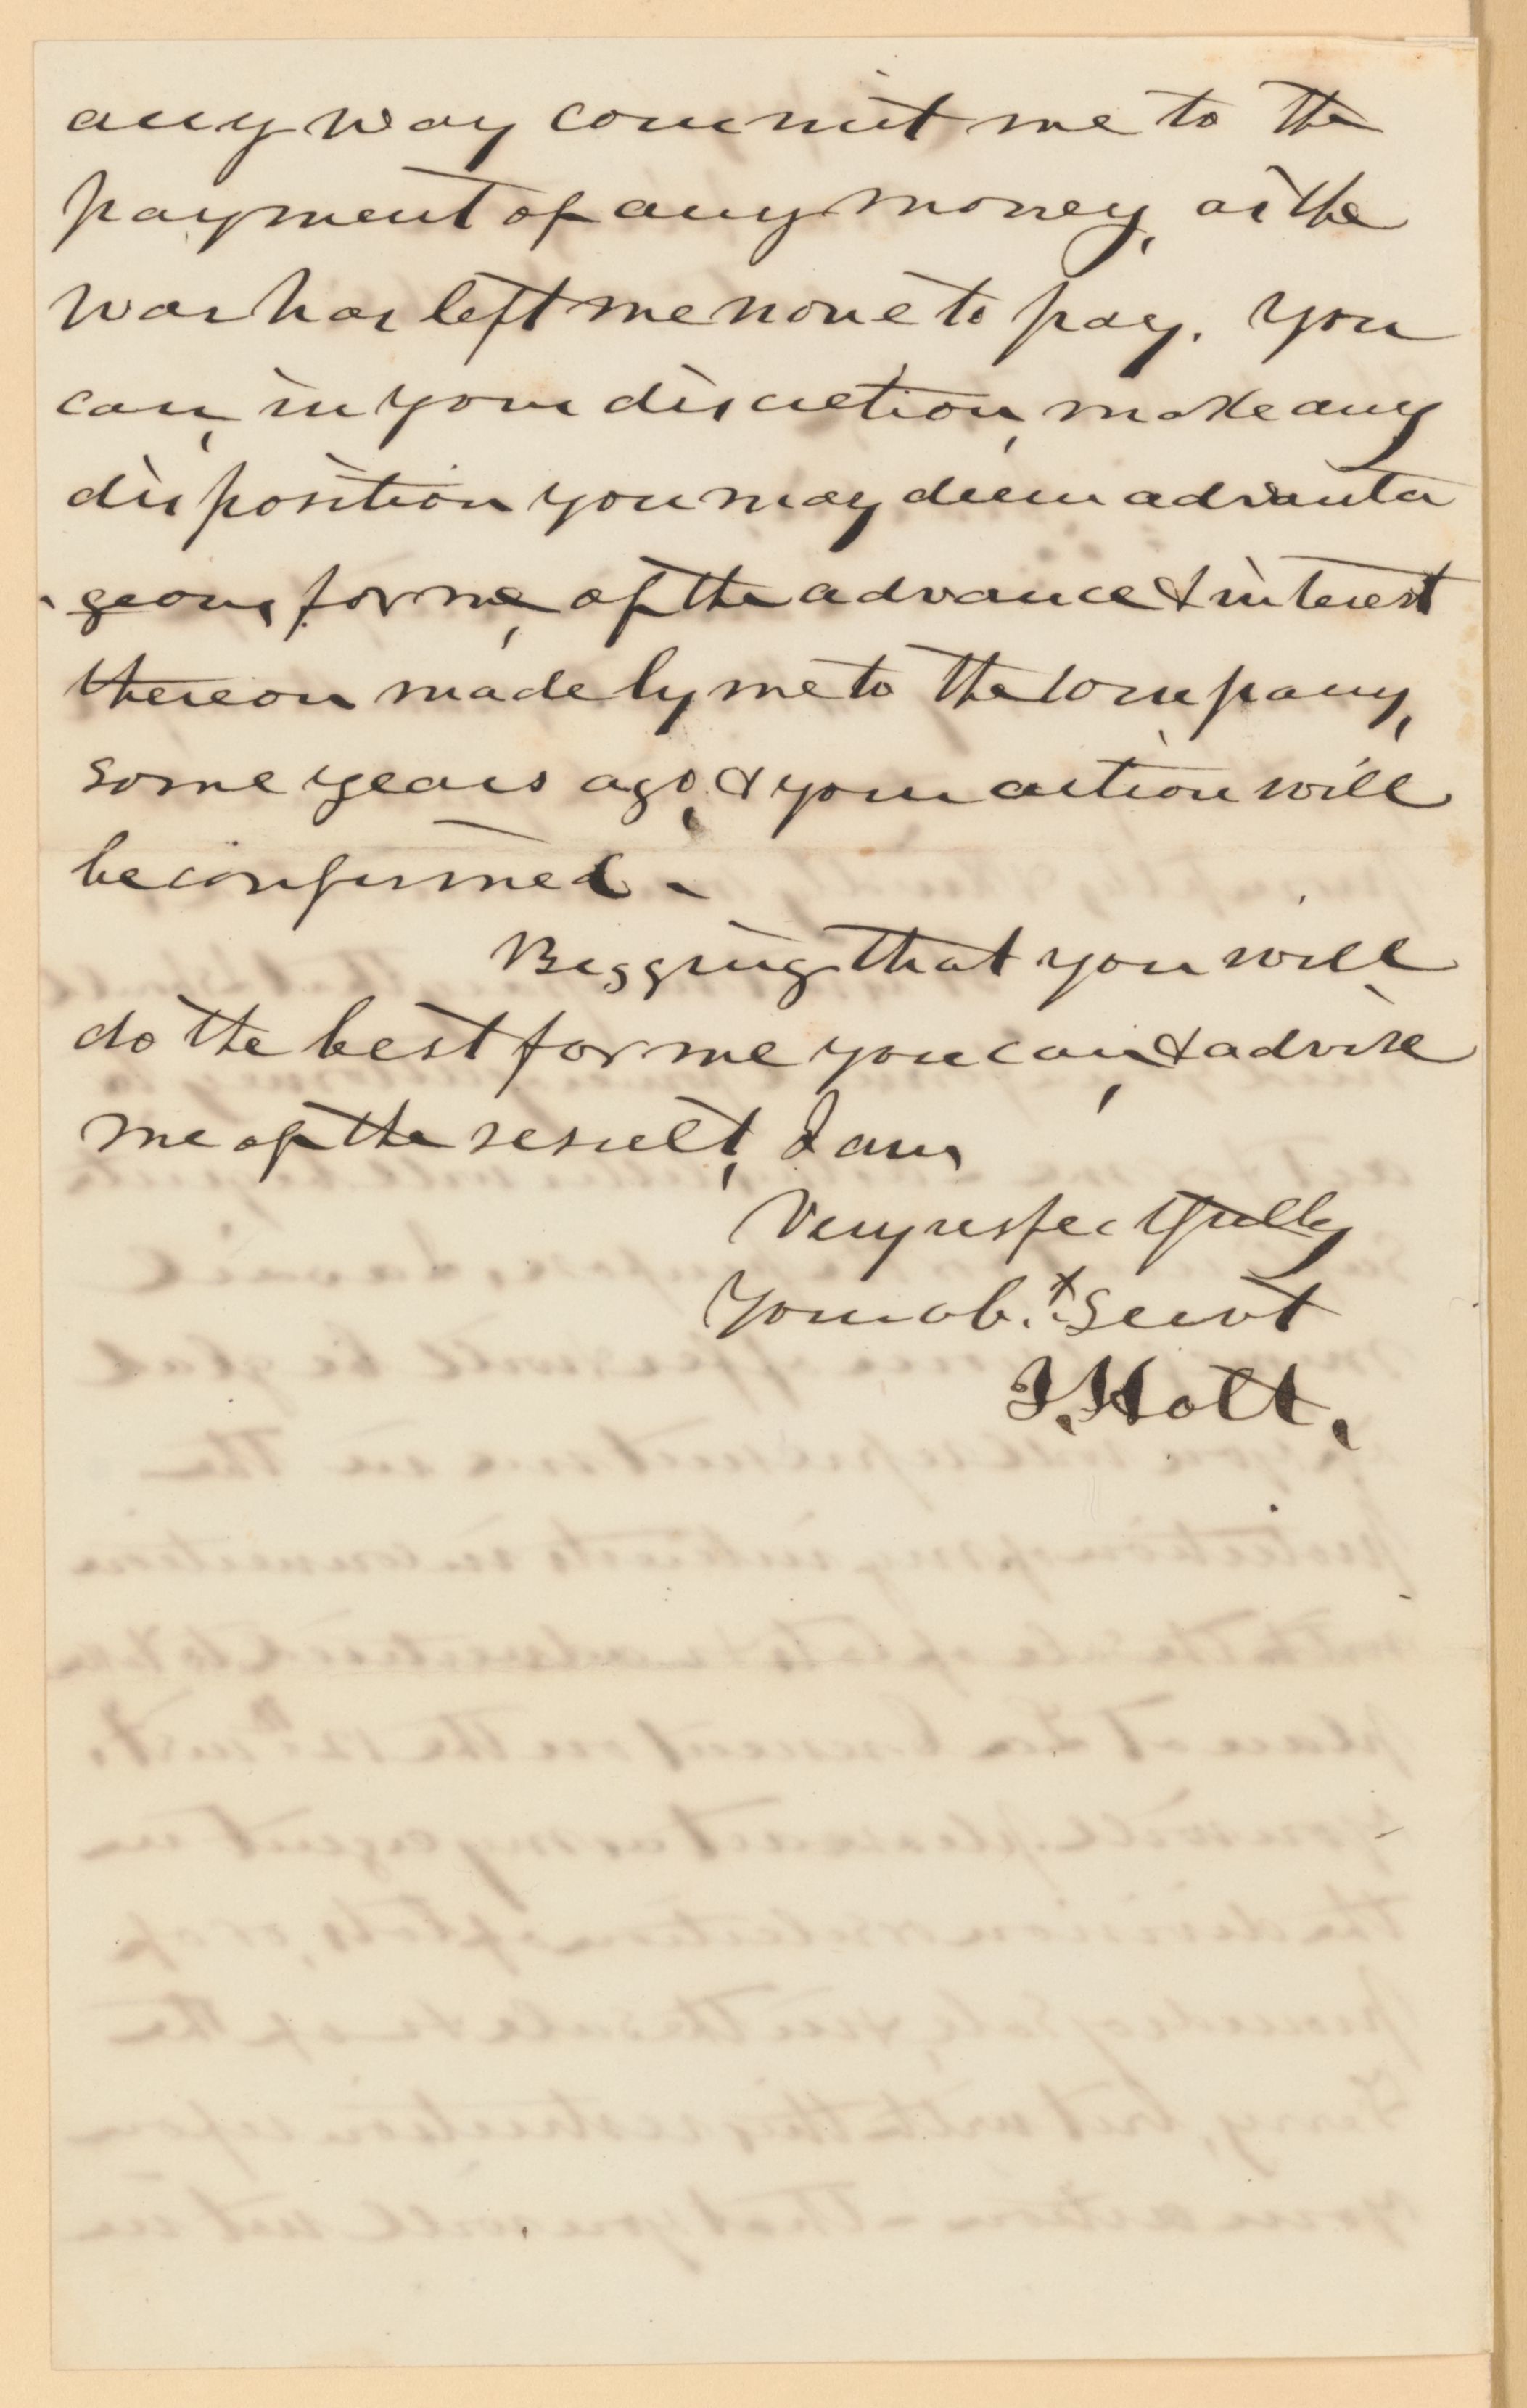 any way commit me to the
payment of any money, as the
war has left me none to pay. You
can, in your discretion, make any
disposition you may deem advanta
-geous for me, of the advance & interest
thereon made by me to the Company,
some years ago, & your action will
be confirmed.-
Begging that you will
do the best for me you can, & advise
me of the result, I am
Very respectfully
Your obt. Servt
J. Holt.